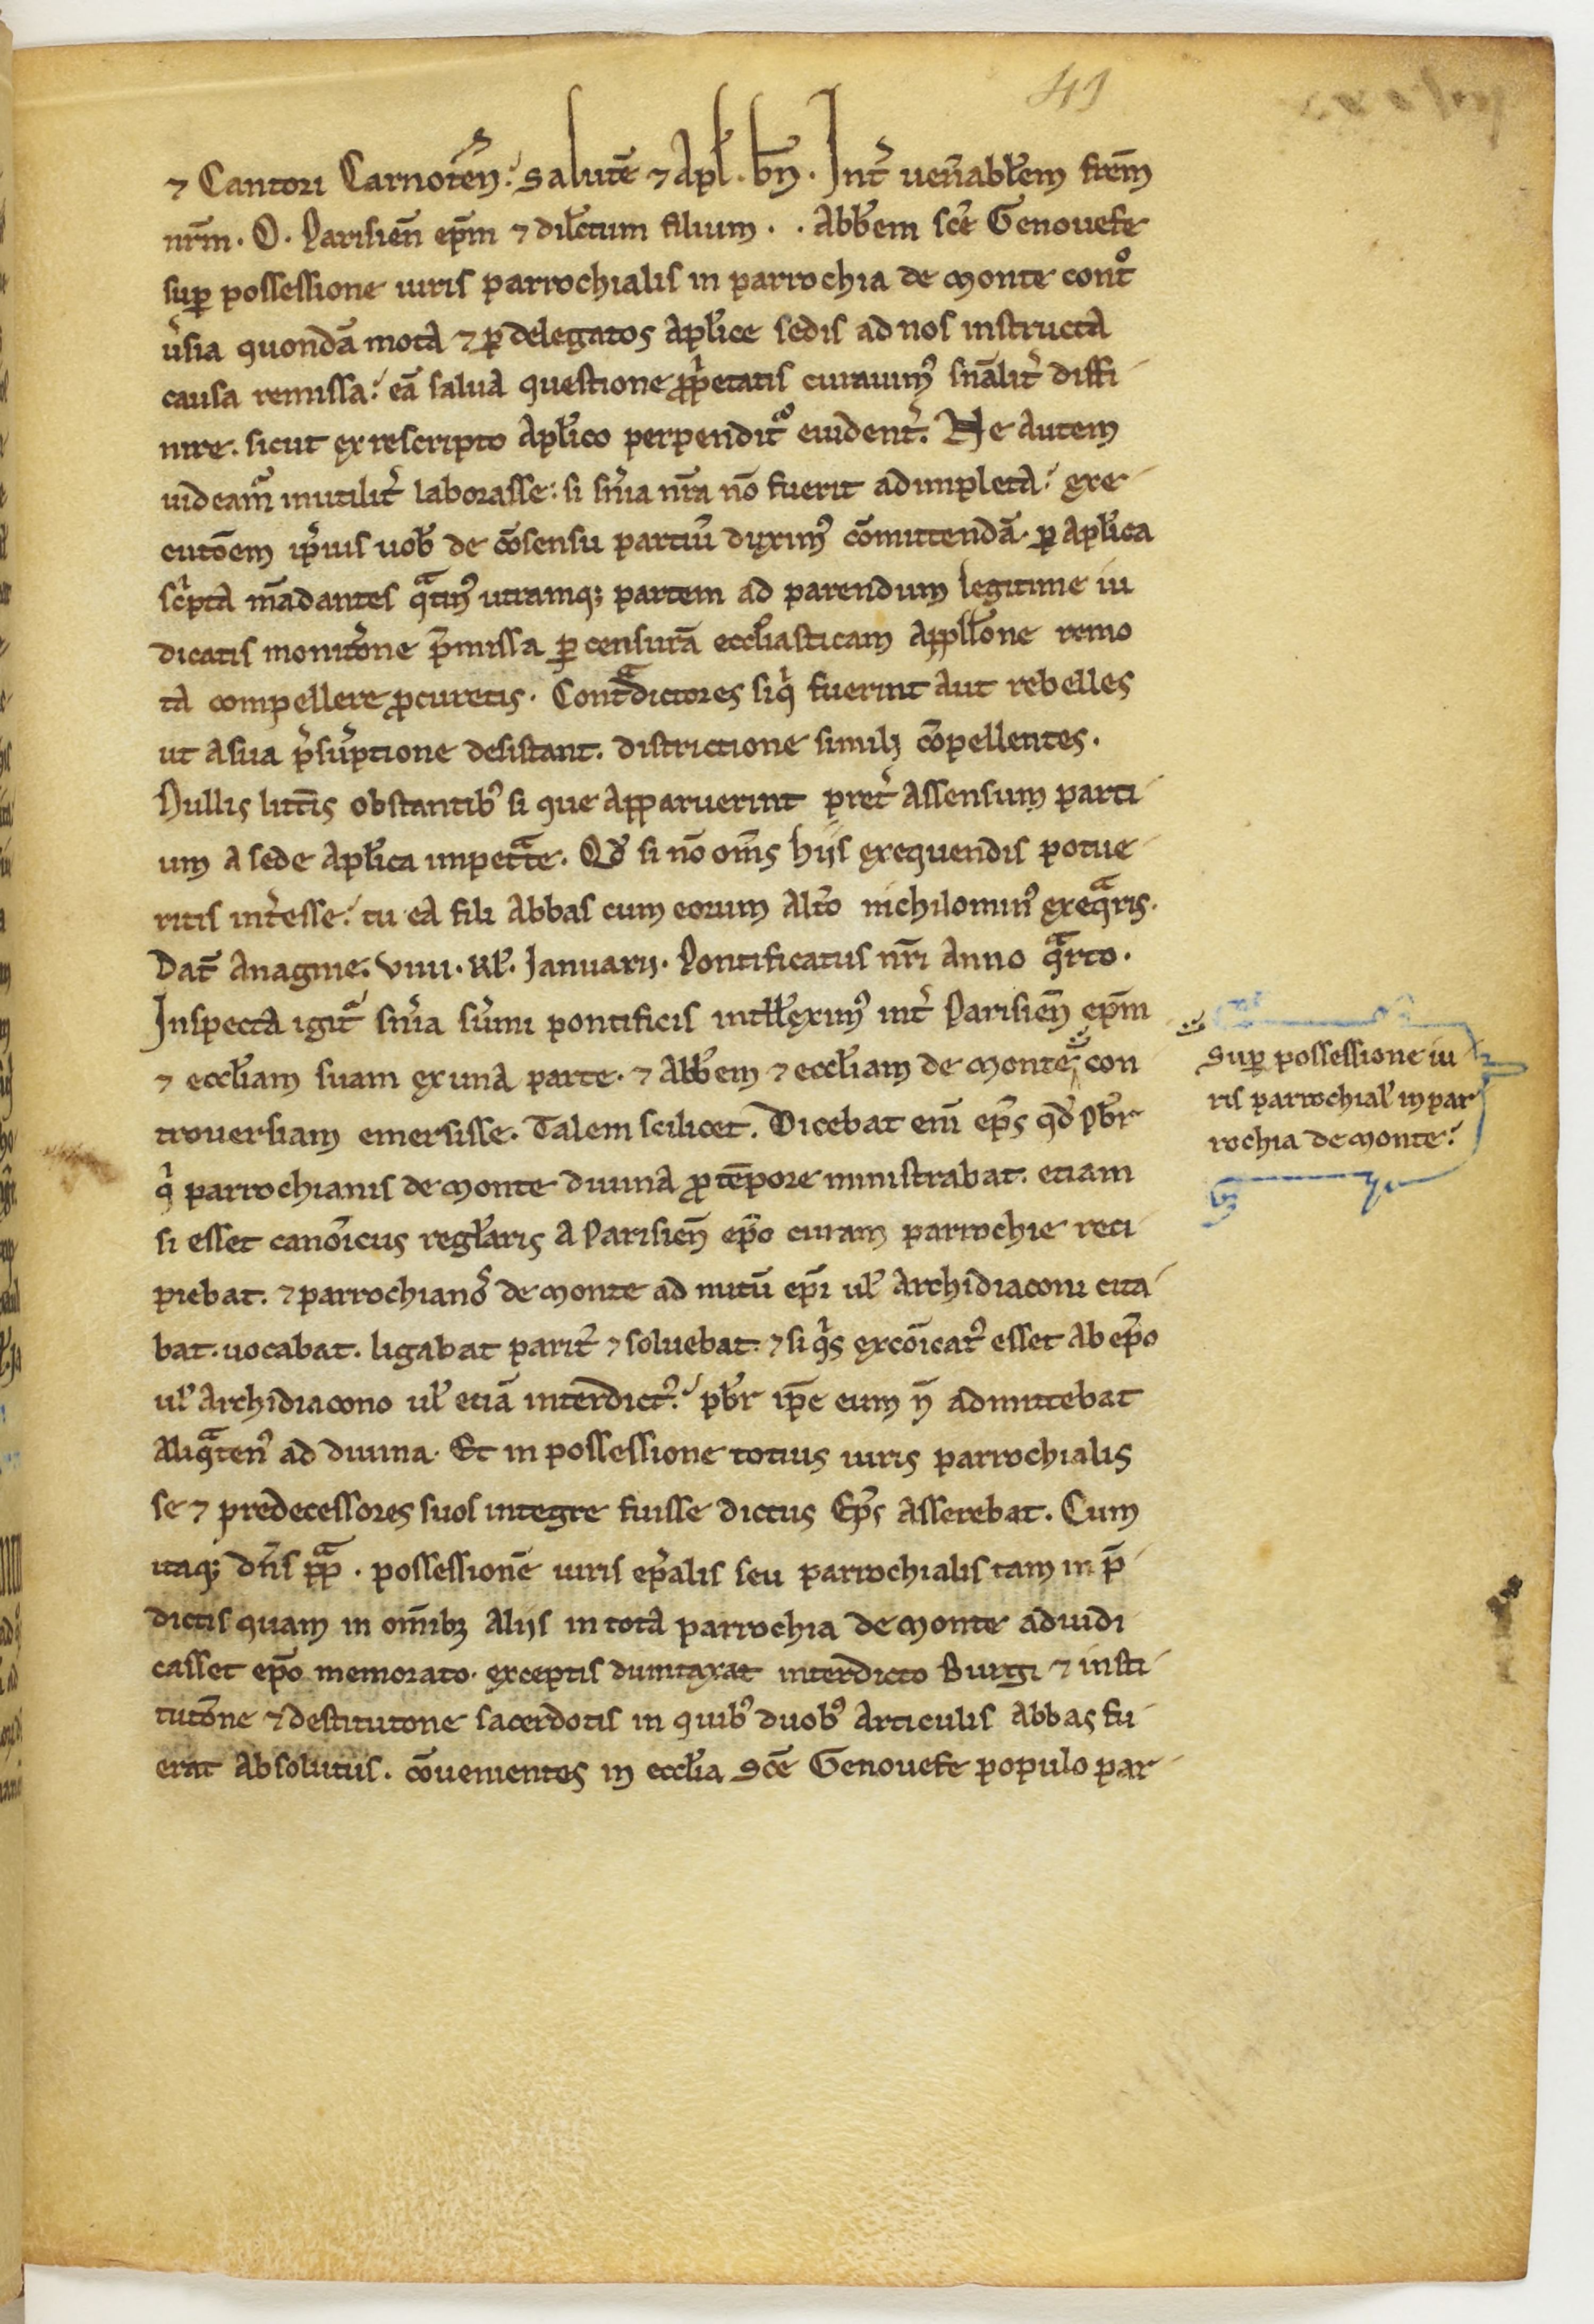 41
⁊ Cantori Carnoteñ. salutē ⁊ Apl̃. bñ. Int̉ ueñabl̃em fr̃em
nr̃m. O. Parisieñ ep̃m ⁊ dil̃ctum filium . . Abb̃em sc̃e Genouefe
suꝑ possessione iuris parrochialis in parrochia de Monte contͦ
u̓sia quondã mota ⁊ ꝑ delegatos apl̃ice sedis ad nos instructa
causa remissa. eã salua questione ꝓp̓etatis curauimꝰ sñalit̓ diffi
nire. sicut ex rescripto Apl̃ico perpendit᷑ euident̓. Ne autem
uideam᷑ inutilit̓ laborasse. si sñia nr̃a nõ fuerit adimpleta. exe
cutõem ip̓ius uob̃ de cõsensu partiũ duximꝰ cõmittendã. ꝑ Apl̃ica
sc̓pta mãdantes qͣtinꝰ utramqꝫ partem ad parendum legitime iu
dicatis monitõne p̃missa ꝑ censurã eccl̃iasticam appll̃one remo
ta compellere ꝓcuretis. Contͣdictores siqͥ fuerint aut rebelles
ut a sua p̓sũptione desistant. districtione similꝫ cõpellentes.
Nullis litt̃is obstantibꝰ si que apparuerint pret̓ assensum parti
um a sede Apl̃ica impetͣte. Qd̃ si nõ om̃s hijs exequendis potue
ritis int̓esse. tu ea fili abbas cum eorum alt̓o nichilominꝰ exeqͣris.
Dat̃ Anagnie. viiii. kl̃. Januarij. Pontificatus nr̃i anno qͣrto.
Inspecta igit᷑ sñia sũmi pontificis intell̃eximꝰ int̓ Parisieñ ep̃m
⁊ eccl̃iam suam ex una parte. ⁊ abb̃em ⁊ eccl̃iam de Monte con
trouersiam emersisse. Talem scilicet. Dicebat eni᷑ ep̃s qd̃ pb̃r
qͥ parrochianis de Monte diuina ꝓ tẽpore ministrabat. etiam
si esset canõicus regl̃aris a Parisieñ ep̃o curam parrochie reci
piebat. ⁊ parrochianoꝰ de Monte ad nutũ ep̃i ul̃ Archidiaconi cita
bat. uocabat. ligabat parit̓ ⁊ soluebat. ⁊ si qͥs excõicatꝰ esset ab ep̃o
ul̃ Archidiacono ul̃ etiã interdictꝰ. pb̃r ip̃e eum ñ admittebat
aliqͣtenꝰ ad diuina. Et in possessione totius iuris parrochialis
se ⁊ predecessores suos integre fuisse dictus Ep̃s asserebat. Cum
itaqꝫ dñs pp̃ͣ . possessionẽ iuris ep̃alis seu parrochialis tam in p̃
dictis quam in om̃ibꝫ alijs in tota parrochia de Monte adiudi
casset ep̃o memorato. exceptis dumtaxat interdicto Burgi ⁊ insti
tutõne ⁊ destitutone sacerdotis in quibꝰ duobꝰ articulis Abbas fu
erat absolutus. cõuenientes in eccl̃ia Sc̃e Genouefe populo par
Suꝑ possessione iu
ris parrochial̃ in par
rochia de Monte.